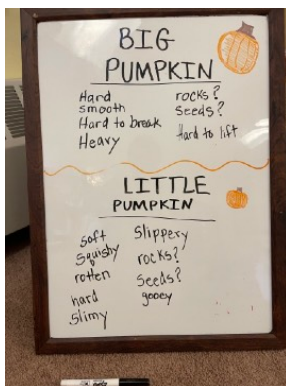 BIG
PUMPKIN
Hard
smooth
Hard to break
Heavy
rocks?
Seeds?
Hard to lift
LITTLE
PUMPKIN
soft
Squishy
rotten
hard
slimy
Slippery
rocks?
Seeds?
gooey